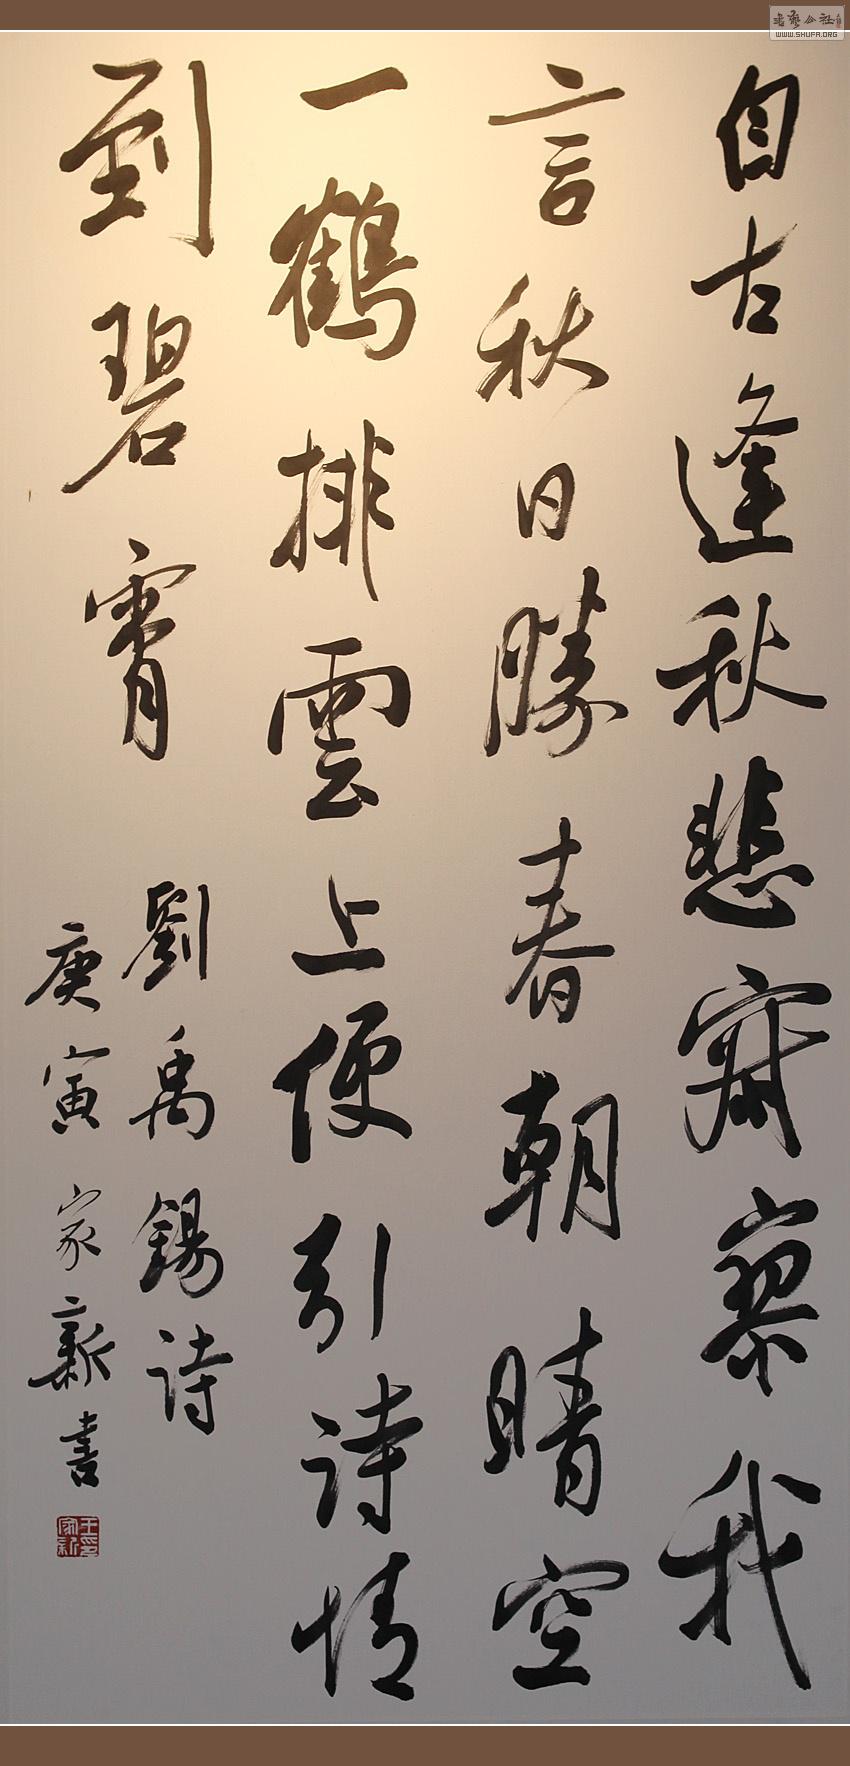 自古逢秋悲寂寥我
言秋日勝春朝晴空
一鶴排雲上便引詩情
到碧霄
劉禹錫詩
庚寅家新書
王印家新
書藝公社
WWW.SHUFA.ORG